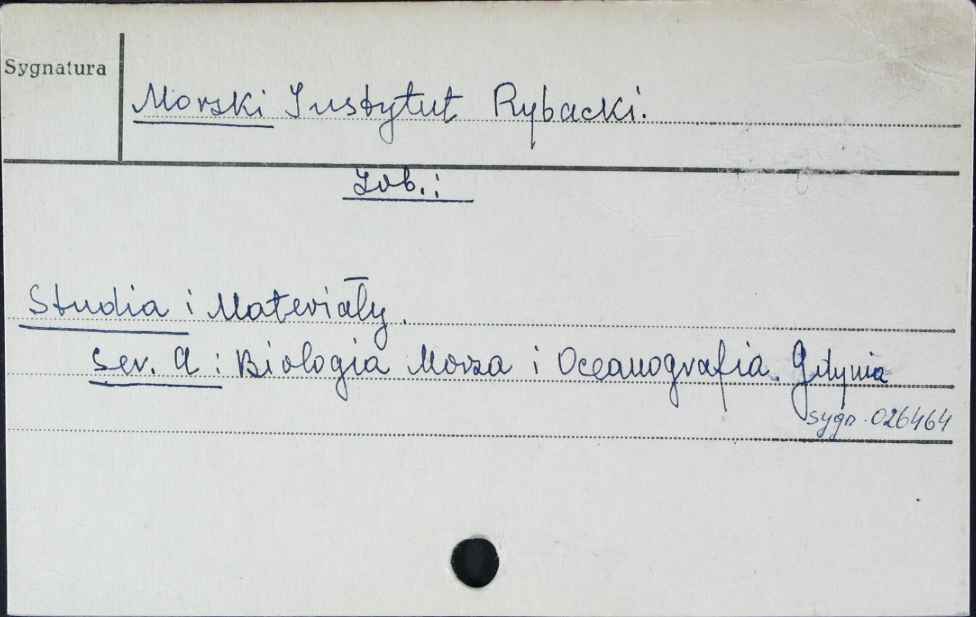 Sygnatura
Morski Instytut Rybacki.
Zob.:
Studia i Materiały.
Ser. A : Biologia Morza i Oceanografia. Gdynia
sygn. 026464